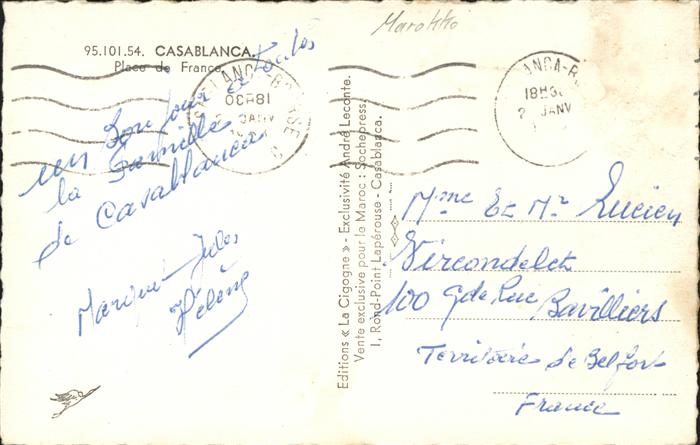 Marokko
95.101.54. CASABLANCA.
Place de France
un bonjour a toutes
la famille
de Casablanca
Jules
Hélène
Editions « La Cigogne » - Exclusivité André Leconte.
Vente exclusive pour le Maroc : Sochepress,
1, Rond-Point Lapérouse - Casablanca.
18H30
JANV
18H30
JANV
Mme Et Mr Lucien
Vircondelet
100 Gde Rue Bavilliers
Territoire de Belfort
France